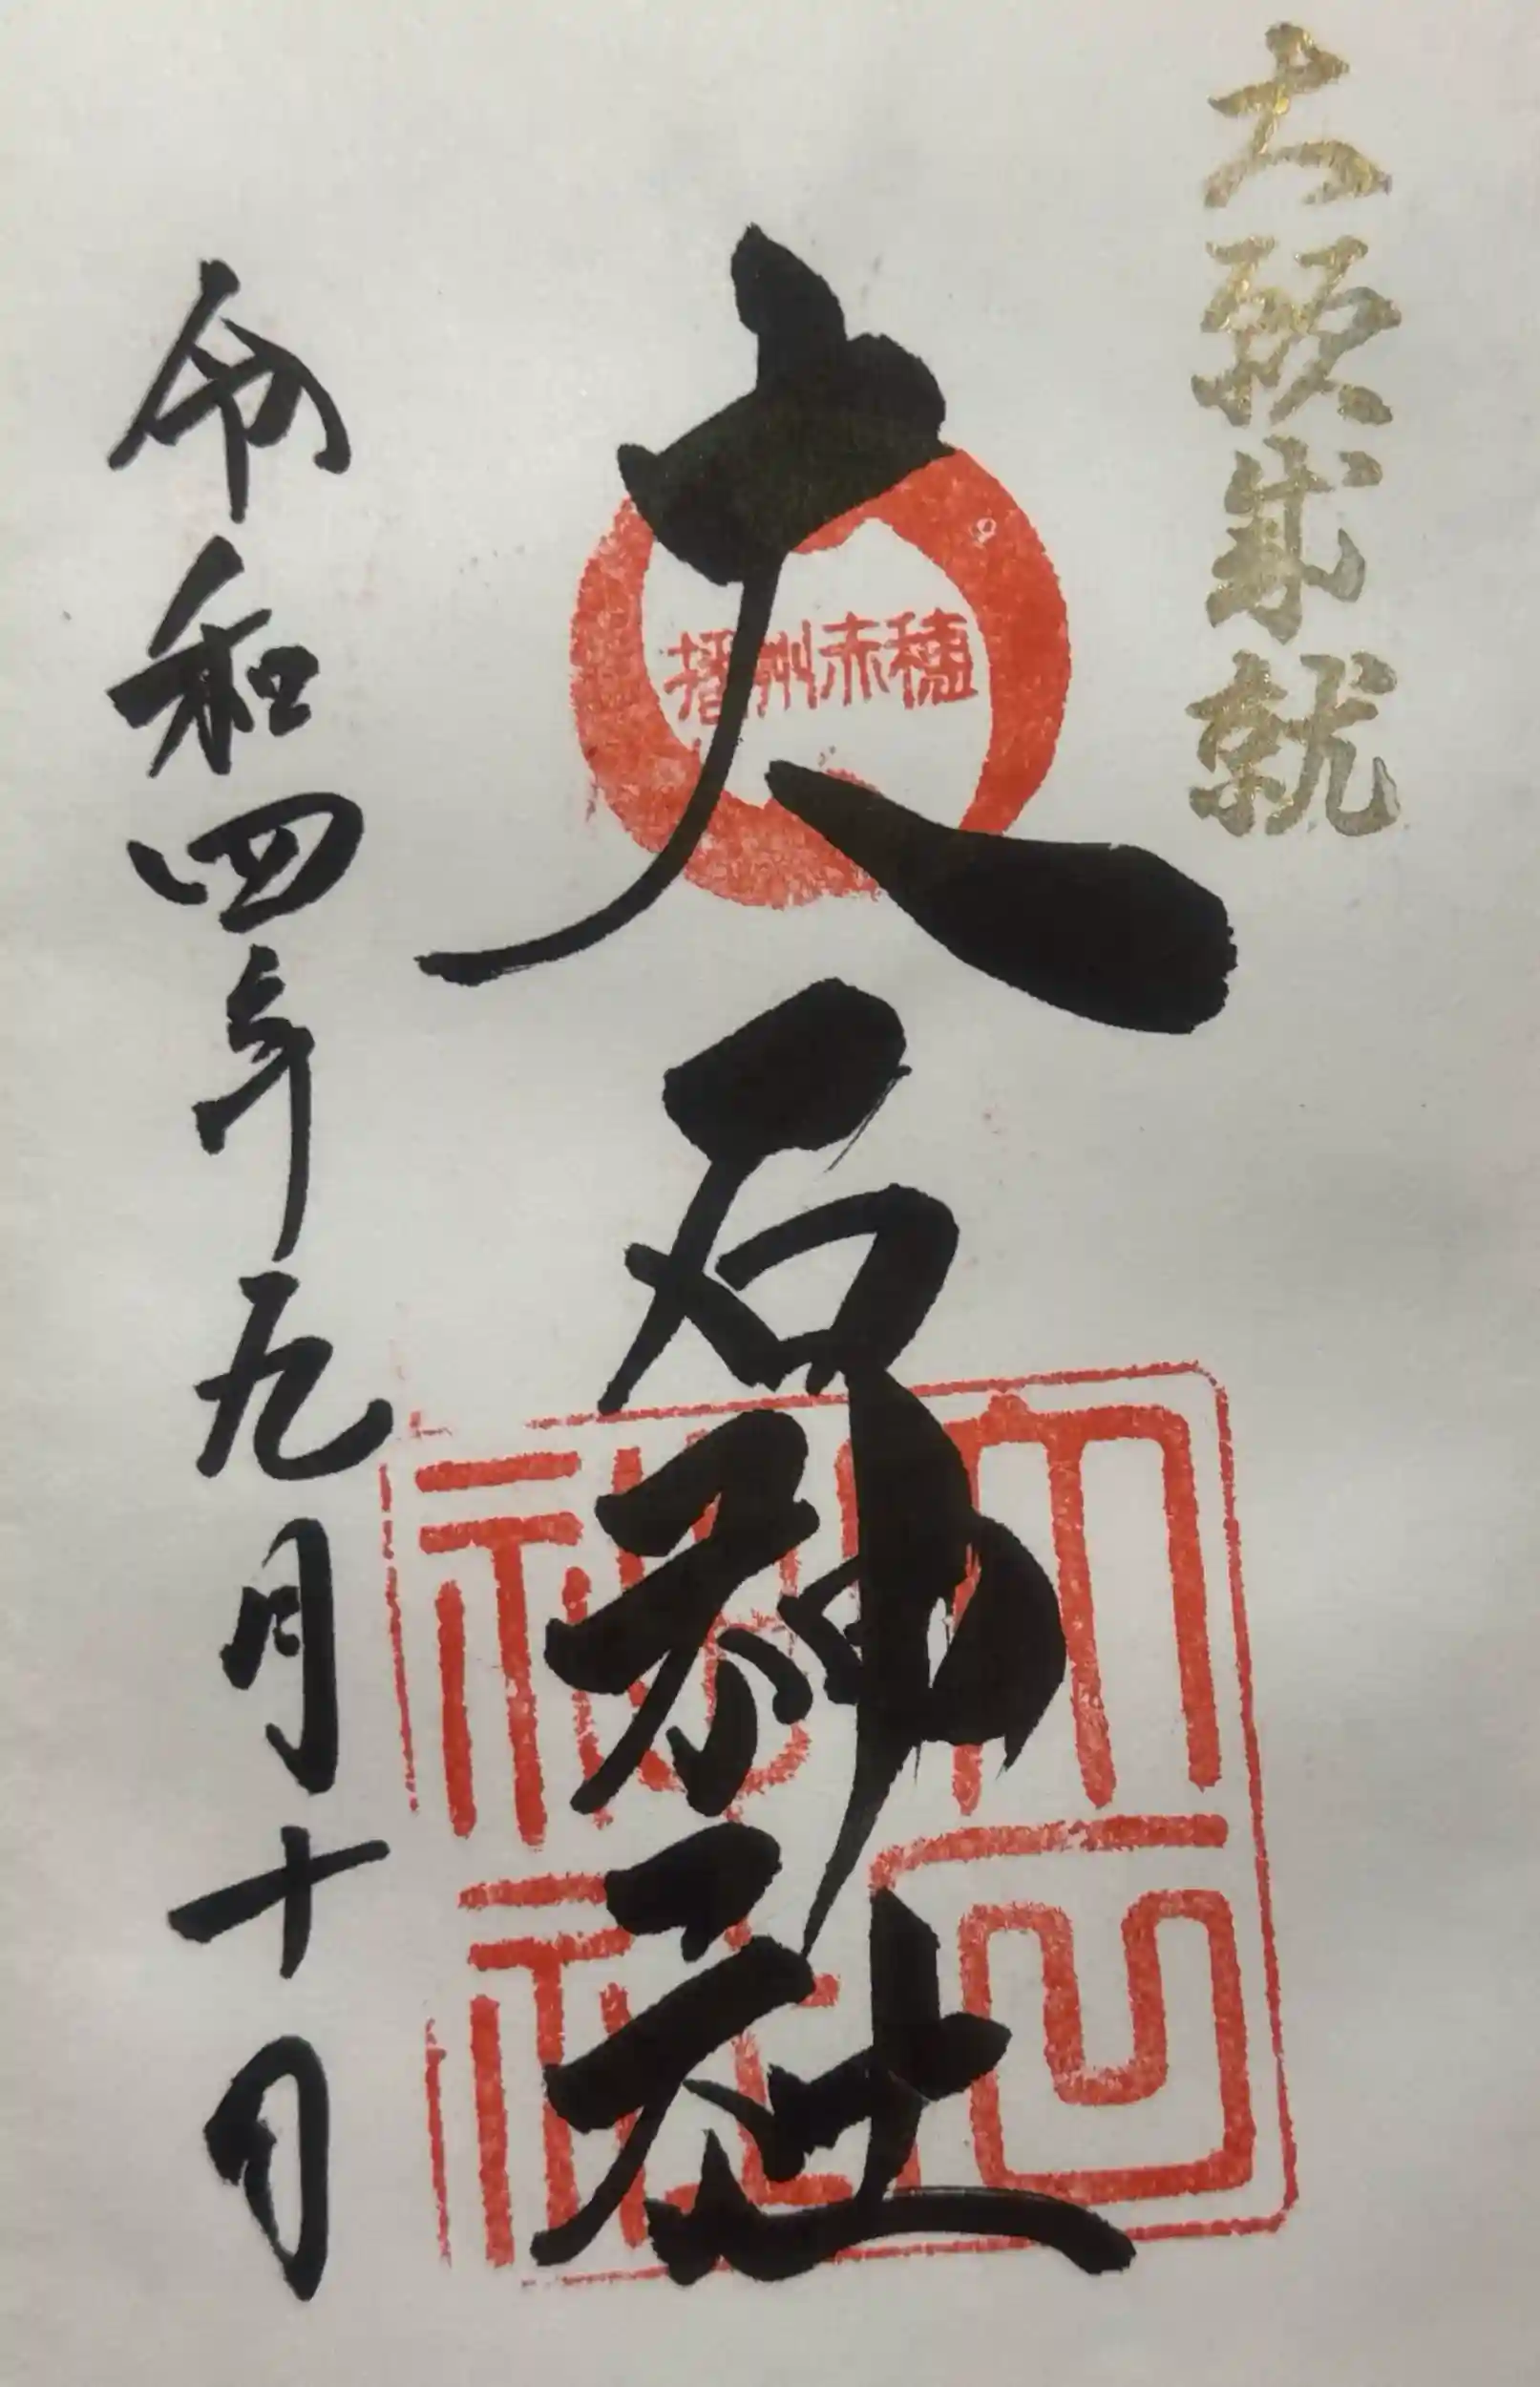 大願成就
大石神社
播州赤穂
大石神社
令和四年九月十日